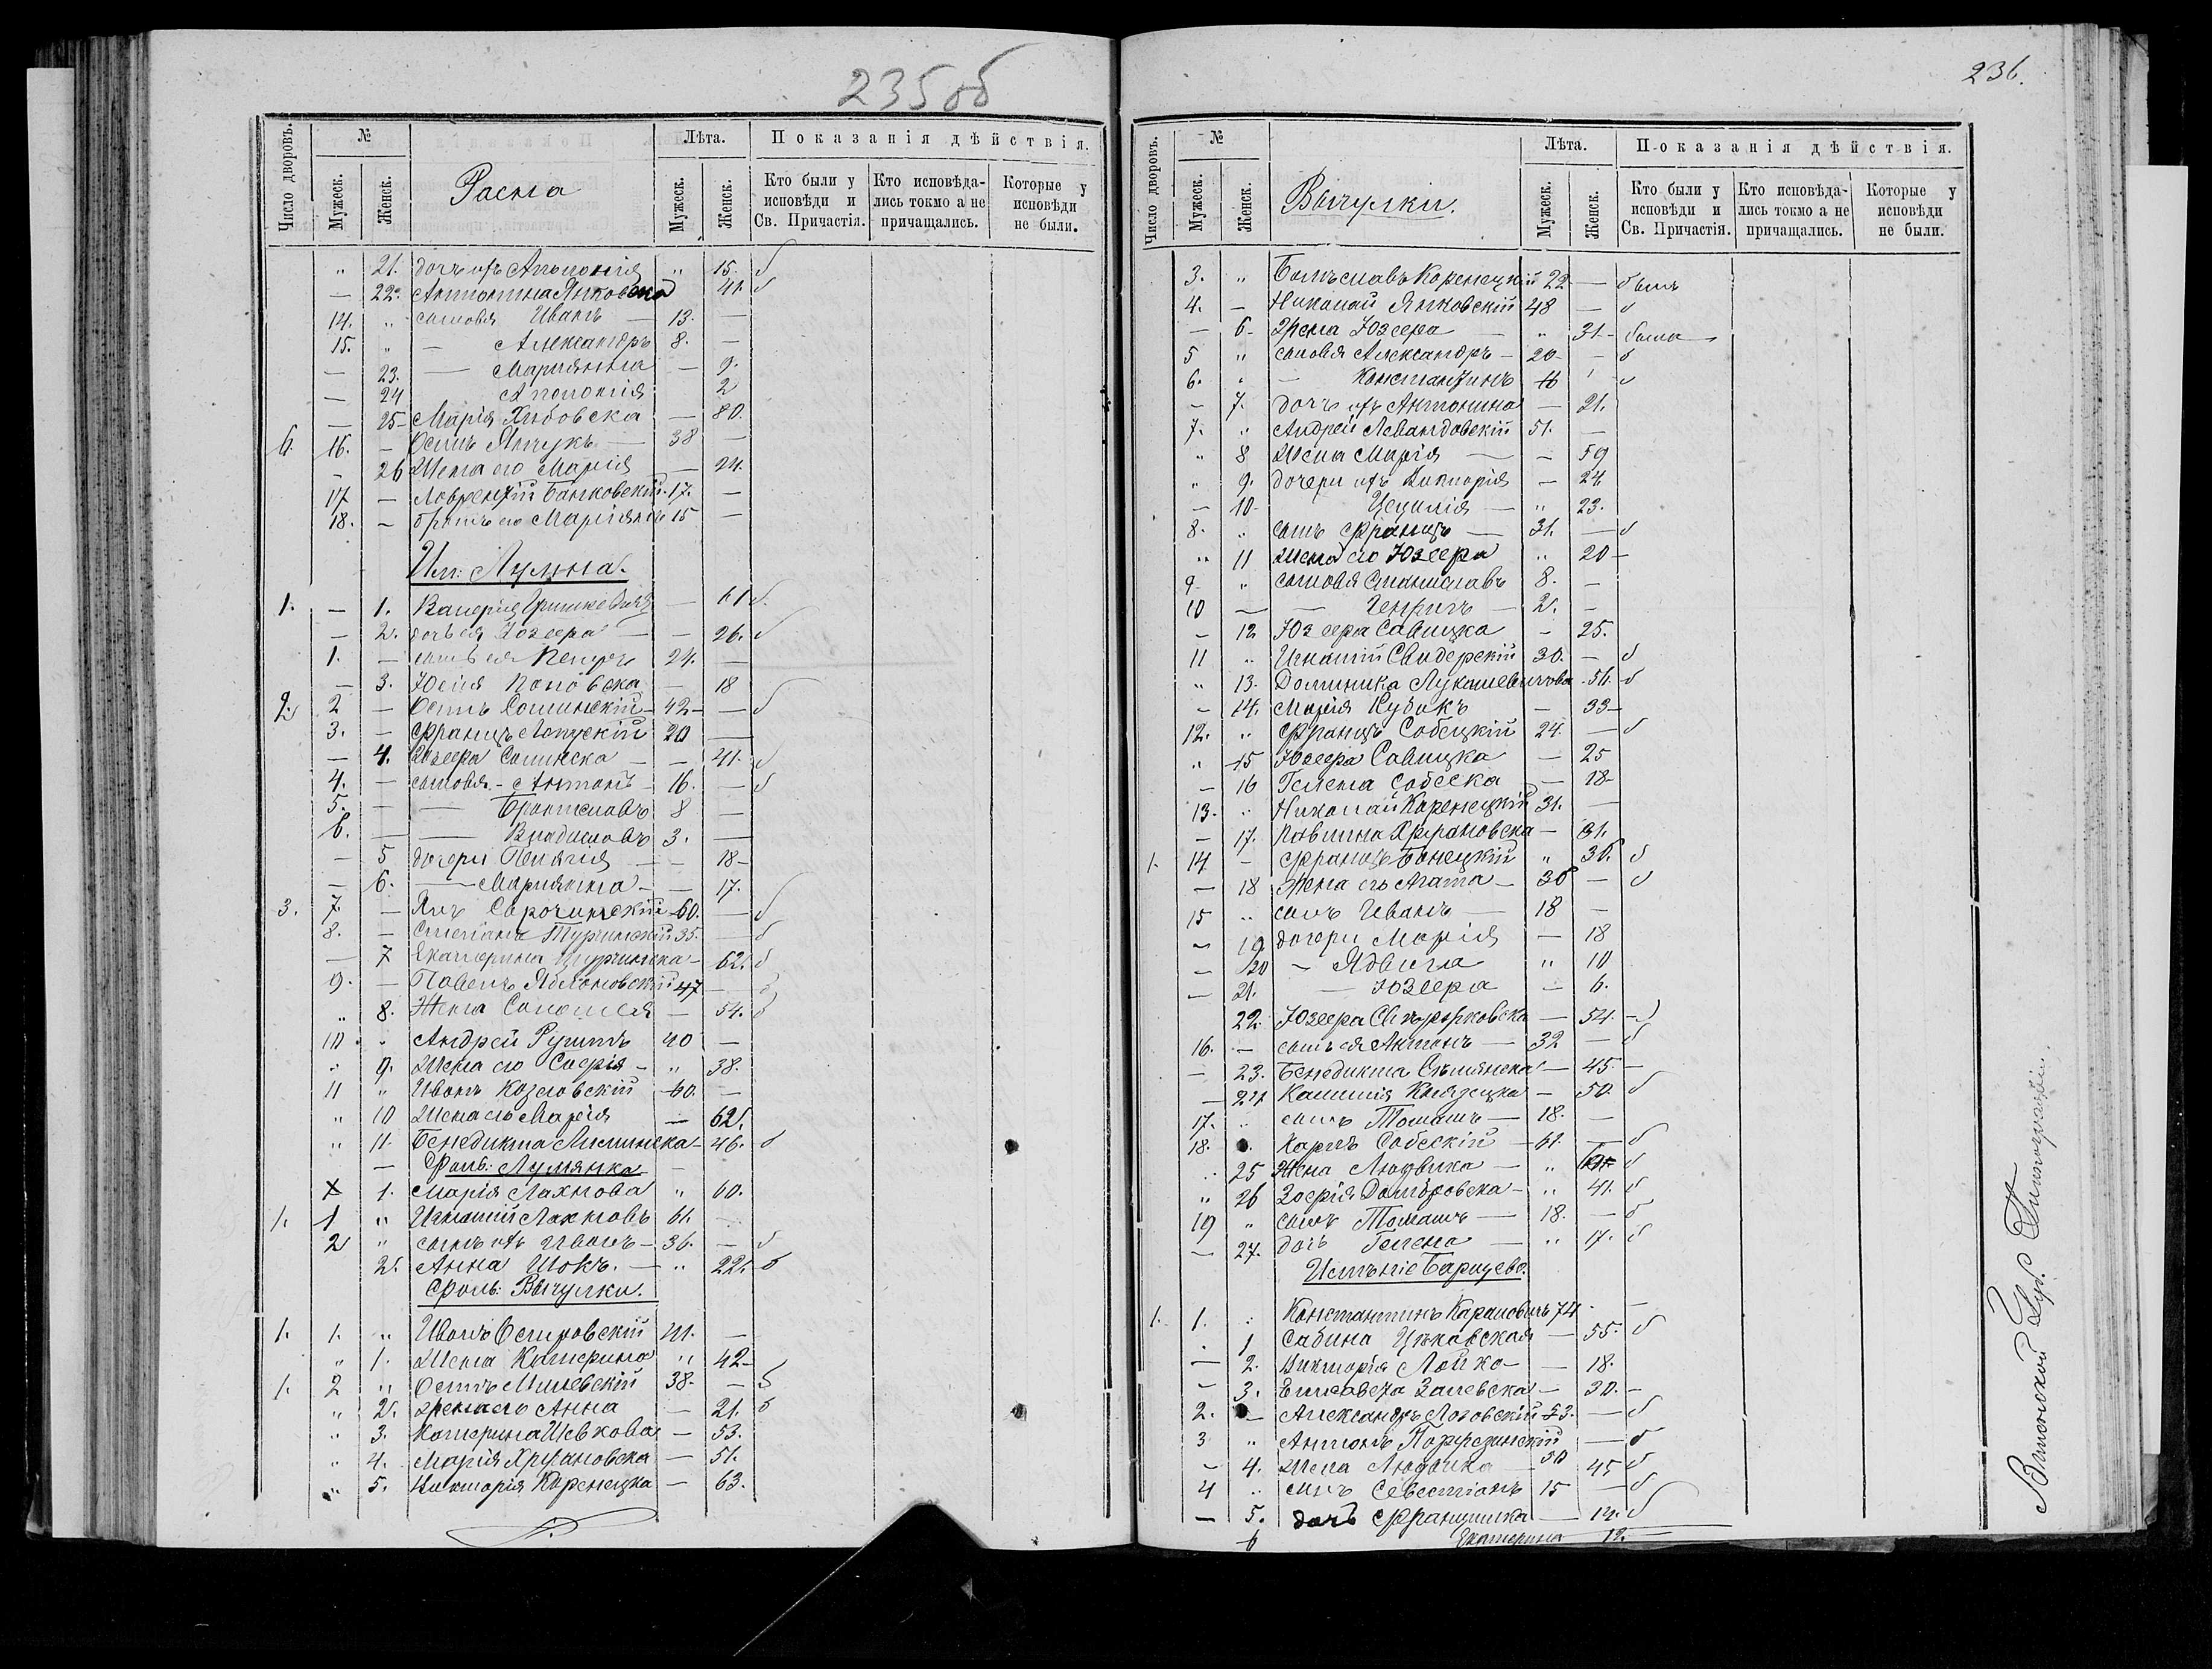 235об
Число дворовъ.
№
Мужеск.
Женск.
Расна
Лѣта.
Мужеск.
Женск.
Показанія дѣйствія.
Кто были у исповѣди и Св. Причастія.
Кто исповѣдались токмо а не причащались.
Которые у исповѣди не были.
" 21. дочь ихъ Апполонія " 15. б
— 22. Антонина Янковска 41 б
14. " сыновья Иванъ — 13. —
15. " — Александръ 8. —
— 23. — Маріянна — 9.
— 24 Аполонія 2
— 25 Марія — 80.
6. 16. — Осипъ Янчукъ — 38 —
— 26 Жена его Марія — 24.
17 — Лаврентій Банковскій 17. —
18. — братъ его Маріянъ 15 —
Им:
1. — 1. Валерія 61 б.
— 2. дочь ея Юзефа — — 26. б
1. — сынъ ея Петръ 24. —
— 3. Юлія Поповска — 18
2. 2 — Осипъ 42 — — б
3. — Францъ 20 —
— 4. Юзефа — 41. б
4. — сыновья — Антонъ — 16. — б
5. — — Брониславъ 8 —
6. — — Владиславъ 3. —
— 5 дочери Пелагія — — 18 —
— 6. — Маріянна — — 17.
3. 7. — Янъ Сорочинскій 60. — б
8. — Степанъ Турчинскій 35. — б
— 7 Екатерина Турчинска — 62. б
9. — Павелъ Яблоновскій 47 — б
" 8. Жена Саломея — 54. б
10 " Андрей 40 —
" 9. Жена его Софія — " 38.
11 " Иванъ Козловскій 60. —
" 10 Жена его Марія — 62.
" 11. Бенедикта 46. б
— Фоль: Лумянка —
1. Марія Лахнова " 60.
1. 1 " Игнатій Лахновъ 61. —
2 " сынъ ихъ Иванъ — 36. — б
2. Анна Шокъ. — " 22. б
Фоль: Вычулки.
1. 1. " Иванъ 41. —
" 1. Жена Катерина " 42 —
1. 2 " Осипъ Милевскій 38. — б
" 2. Жена его Анна — 21. б
" 3. Катерина Шевкова — 53.
" 4. Марія Хржановска — 51.
" 5. Викторія Коренецка — 63.
236.
Число дворовъ.
№
Мужеск.
Женск.
Вычулки.
Лѣта.
Мужеск.
Женск.
Показанія дѣйствія.
Кто были у исповѣди и Св. Причастія.
Кто исповѣдались токмо а не причащались.
Которые у исповѣди не были.
3. " Болѣславъ Коренецкій 22 — былъ
4. — Николай Янковскій 48 — б
— 6 — Жена Юзефа — " 31 — была
5 " сыновья Александръ — 20 — — б
6. " — Константинъ 16 — б
— 7. дочь ихъ Антонина — 21.
7. " Андрей Левандовскій 51. —
" 8 Жена Марія — — 59
" 9. дочери ихъ Викторія — 24
— 10 — Цецилія — " 23.
8. " сынъ Францъ — 31. — б
" 11 Жена его Юзефа " 20 —
9 " сыновья Станиславъ 8. —
10 — — Генрихъ — 2. —
— 12 Юзефа Савицка — 25.
11 " Игнатій Свидерскій 30. — б
" 13. Доминика Лукашевичова 56. б
— 14. Марія Кубакъ — 33 —
12. " Францъ Собецкій 24. — б
" 15 Юзефа Савицка — 25
— 16 Гелена Собеска — 18 —
13. " Николай Коренецкій 31. —
— 17. Павлина Хржановска —
1. 14. — Францъ Банецкій " 36. б
— 18 Жена его Агата — 36 — б
15 " сынъ Иванъ — 18 —
— 19 дочери Марія — 18
— 20 — Ядвига " 10
— 21. — Юзефа — 6.
22. Юзефа — 54. —
16. — сынъ ея Антонъ — 32 — б
— 23. Бенедикта — 45. —
— 24 — 50. б
17. " сынъ Томашъ — 18. —
18. Карлъ Собескій — 61. — б
" 25 Жена Людвика — " б
" 26 Зофія Домбровска — " 41. б
19 " сынъ Томашъ — 18. — б
— 27. дочь Гелена — " 17. б
Имѣніе Барщево.
1. 1. " Константинъ 74 —
" 1 Сабина 55. б
— 2. Викторія — 18.
— 3. Елисавета Залевска — 30. —
2. — Александръ 53. — б
3 " Антонъ — б
— 4. Жена Людвика 30 45 б
4 " сынъ Севестіанъ 15 — б
— 5. дочь Францишка — 14. б
6 Екатерина 12. —
Виленской Губ. Типографіи.